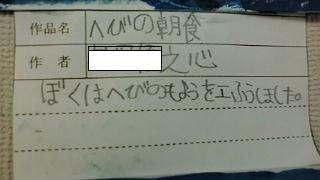 作品名 へびの朝食
作者 之心
ぼくはへびのもようを工ふうしました。